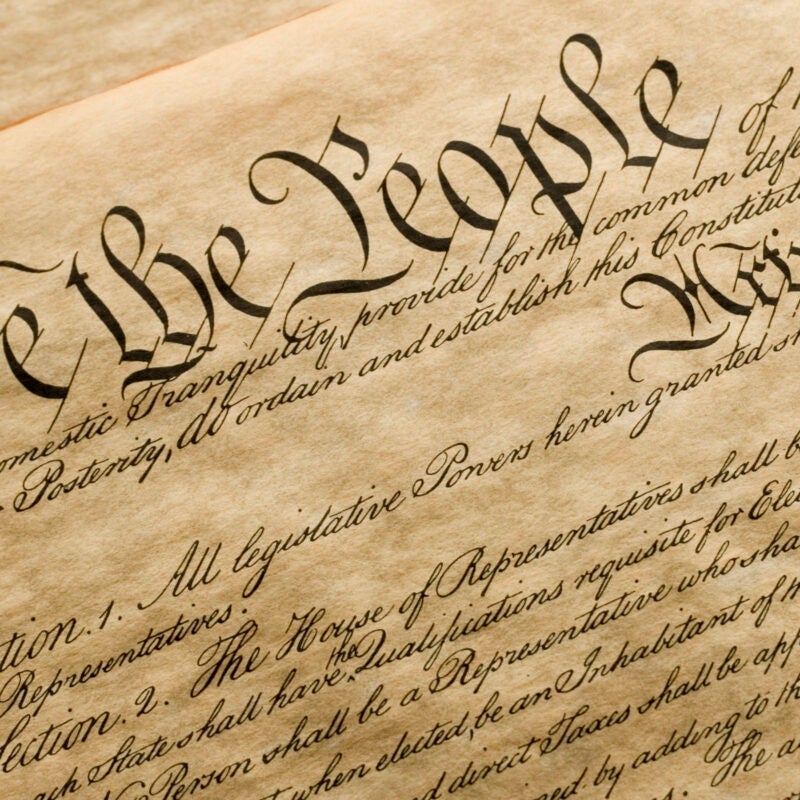 e the People of
omestic Tranquility, provide for the common defe
Posterity, do ordain and establish this Constitut
Artic
tion. 1. All legislative Powers herein granted s
Representatives.
ection. 2. The House of Representatives shall b
ach State shall have the Qualifications requisite for Elec
Person shall be a Representative who sha
when elected, be an Inhabitant of t
d direct Taxes shall be app
ned by adding to th
The a